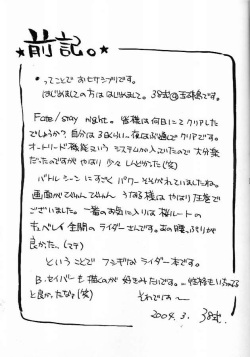 ★前記。★
・ってことで お七サシブリです。
はじめましての方は はじめまして。38式
Fate/stay night. 皆様は何日にてクリアした
でしょうか? 自分は3日くらい、夜はぶっ通しで クリアです。
オートリード機能という システムが入っていたので 大分楽
だったのですがやはり 少々 しんどかった(笑)
バトルシーンに すごく パワー そそがれていましたね。
画面がぐわんぐわん うなる様は やはり圧巻で
ございました。一番のお気に入りは 桜ルートの
全開の ライダーさんです。あの腰っぷりが
良かった。(マテ)
ということで フシギなライダー本です。
B.セイバーも 描くのが 好きみたいです。
と良かったな(笑) それでは〜
2004.3. 38式.